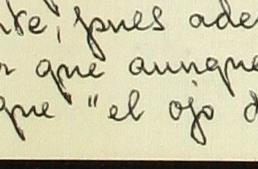 pues ade
que aunque
que "el ojo d